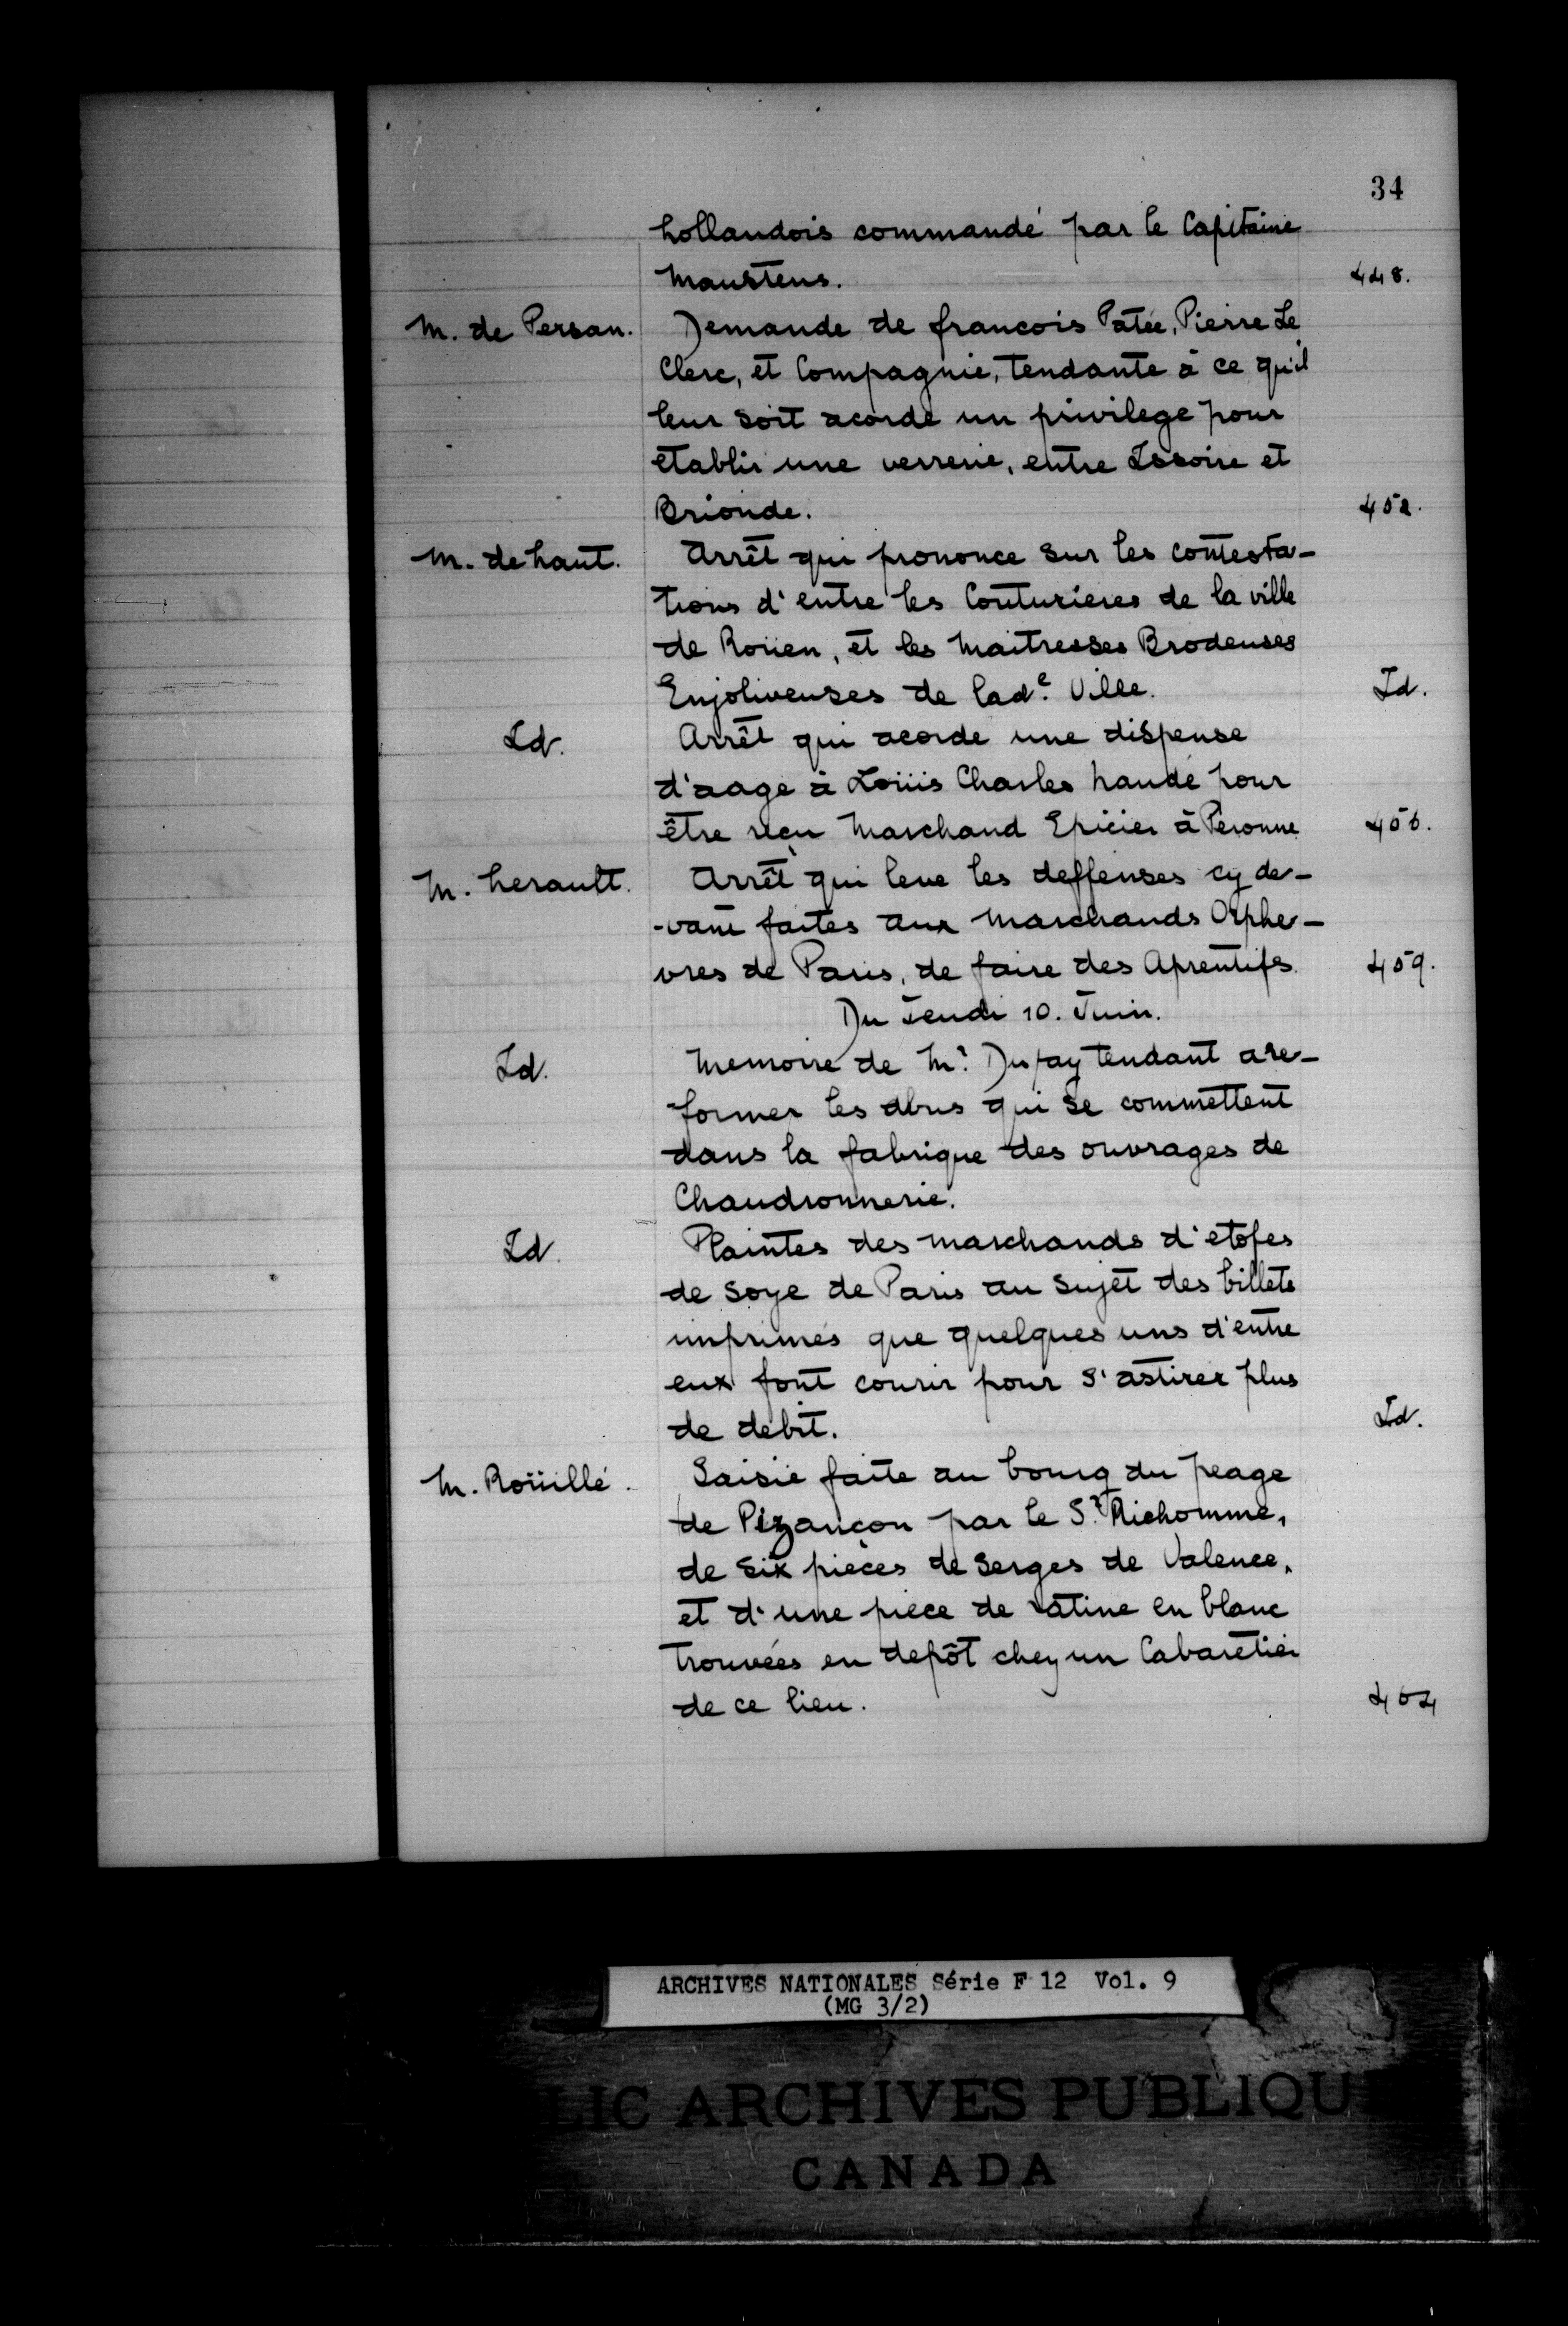 34
hollandois commandé par le Capitaine
Maustens. 448.
M. de Persan. Demande de francois Patée, Pierre Le
Clerc, et Compagnie, tendante à ce qu'il
leur soit acordé un privilege pour
etablir une verrerie, entre Issoire et
Brionde. 452.
M. de haut. Arrêt qui prononce sur les contesta-
tions d'entre les Couturieres de la ville
de Roüen, et les Maitresses Brodeuses
Enjoliveuses de lade. Ville. Id.
Id. Arrêt qui acorde une dispense
d'aage à Loüis Charles haudé pour
être reçu Marchand Epicier à Péronne 456.
M. herault. Arrêt qui leve les deffenses cy de-
-vant faites aux Marchands Orphe-
vres de Paris, de faire des Aprentifs. 459.
Du Jeudi 10. Juin.
Id. Memoire de Mr. Dufay tendant a re-
former les abus qui se commettent
dans la fabrique des ouvrages de
Chaudronnerie.
Id. Plaintes des marchands d'etofes
de soye de Paris au sujet des billets
imprimés que quelques uns d'entre
eux font courir pour s'astirer plus
de debit. Id.
M. Roüillé. Saisie faite au bourg du peage
de Pizançon par le Sr. Richomme,
de six pièces de serges de Valence,
et d'une piece de ratine en blanc
trouvées en depôt chez un Cabaretier
de ce lieu. 464
ARCHIVES NATIONALES Série F 12 Vol. 9
(MG 3/2)
LIC ARCHIVES PUBLIQU
CANADA